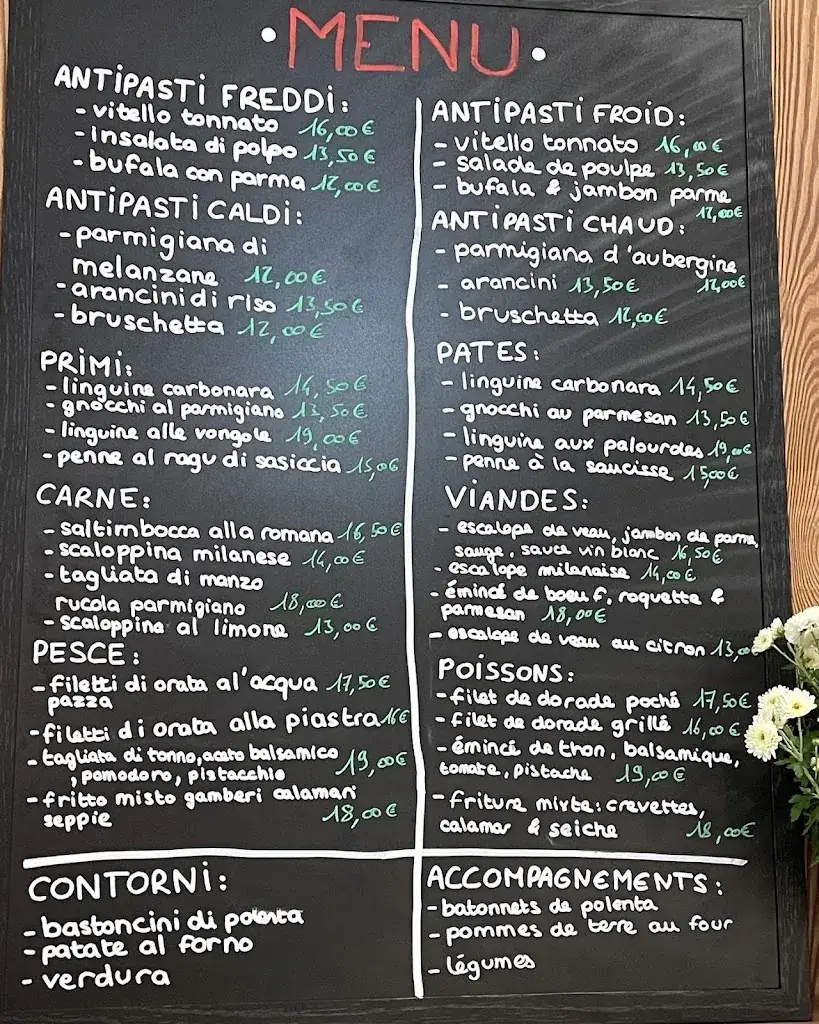 • MENU •
ANTIPASTI FREDDI:
- vitello tonnato 16,00€
- insalata di polpo 13,50€
- bufala con parma 12,00€
ANTIPASTI CALDI:
- parmigiana di
melanzane 12,00€
- arancini di riso 13,50€
- bruschetta 12,00€
PRIMI:
- linguine carbonara 14,50€
- gnocchi al parmigiano 13,50€
- linguine alle vongole 19,00€
- penne al ragu di sasiccia 15,00€
CARNE:
- saltimbocca alla romana 16,50€
- scaloppina milanese 14,00€
- tagliata di manzo
rucola parmigiano 18,00€
- scaloppine al limone 13,00€
PESCE:
- filetti di orata al'acqua 17,50€
pazza
- filetti di orata alla piastra 16€
- tagliata di tonno, aceto balsamico
, pomodoro, pistacchio 19,00€
- fritto misto gamberi calamari
seppie 18,00€
CONTORNI:
- bastoncini di polenta
- patate al forno
- verdura
ANTIPASTI FROID:
- vitello tonnato 16,00€
- salade de poulpe 13,50€
- bufala & jambon parme
12,00€
ANTIPASTI CHAUD:
- parmigiana d'aubergine
12,00€
- arancini 13,50€
- bruschetta 12,00€
PATES:
- linguine carbonara 14,50€
- gnocchi au parmesan 13,50€
- linguine aux palourdes 19,00€
- penne à la saucisse 15,00€
VIANDES:
- escalope de veau, jambon de parme,
sauge, sauce vin blanc 16,50€
- escalope milanaise 14,00€
- émincé de boeuf, roquette &
parmesan 18,00€
- escalope de veau au citron 13,00€
POISSONS:
- filet de dorade poché 17,50€
- filet de dorade grillé 16,00€
- émincé de thon, balsamique,
tomate, pistache 19,00€
- friture mixte: crevettes,
calamar & seiche 18,00€
ACCOMPAGNEMENTS:
- batonnets de polenta
- pommes de terre au four
- légumes